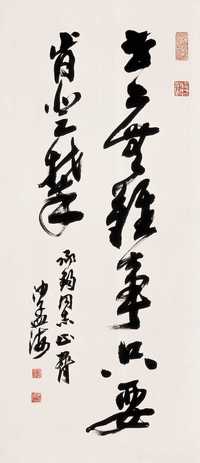 世上無難事只要
肯登攀
同志正
沙孟海